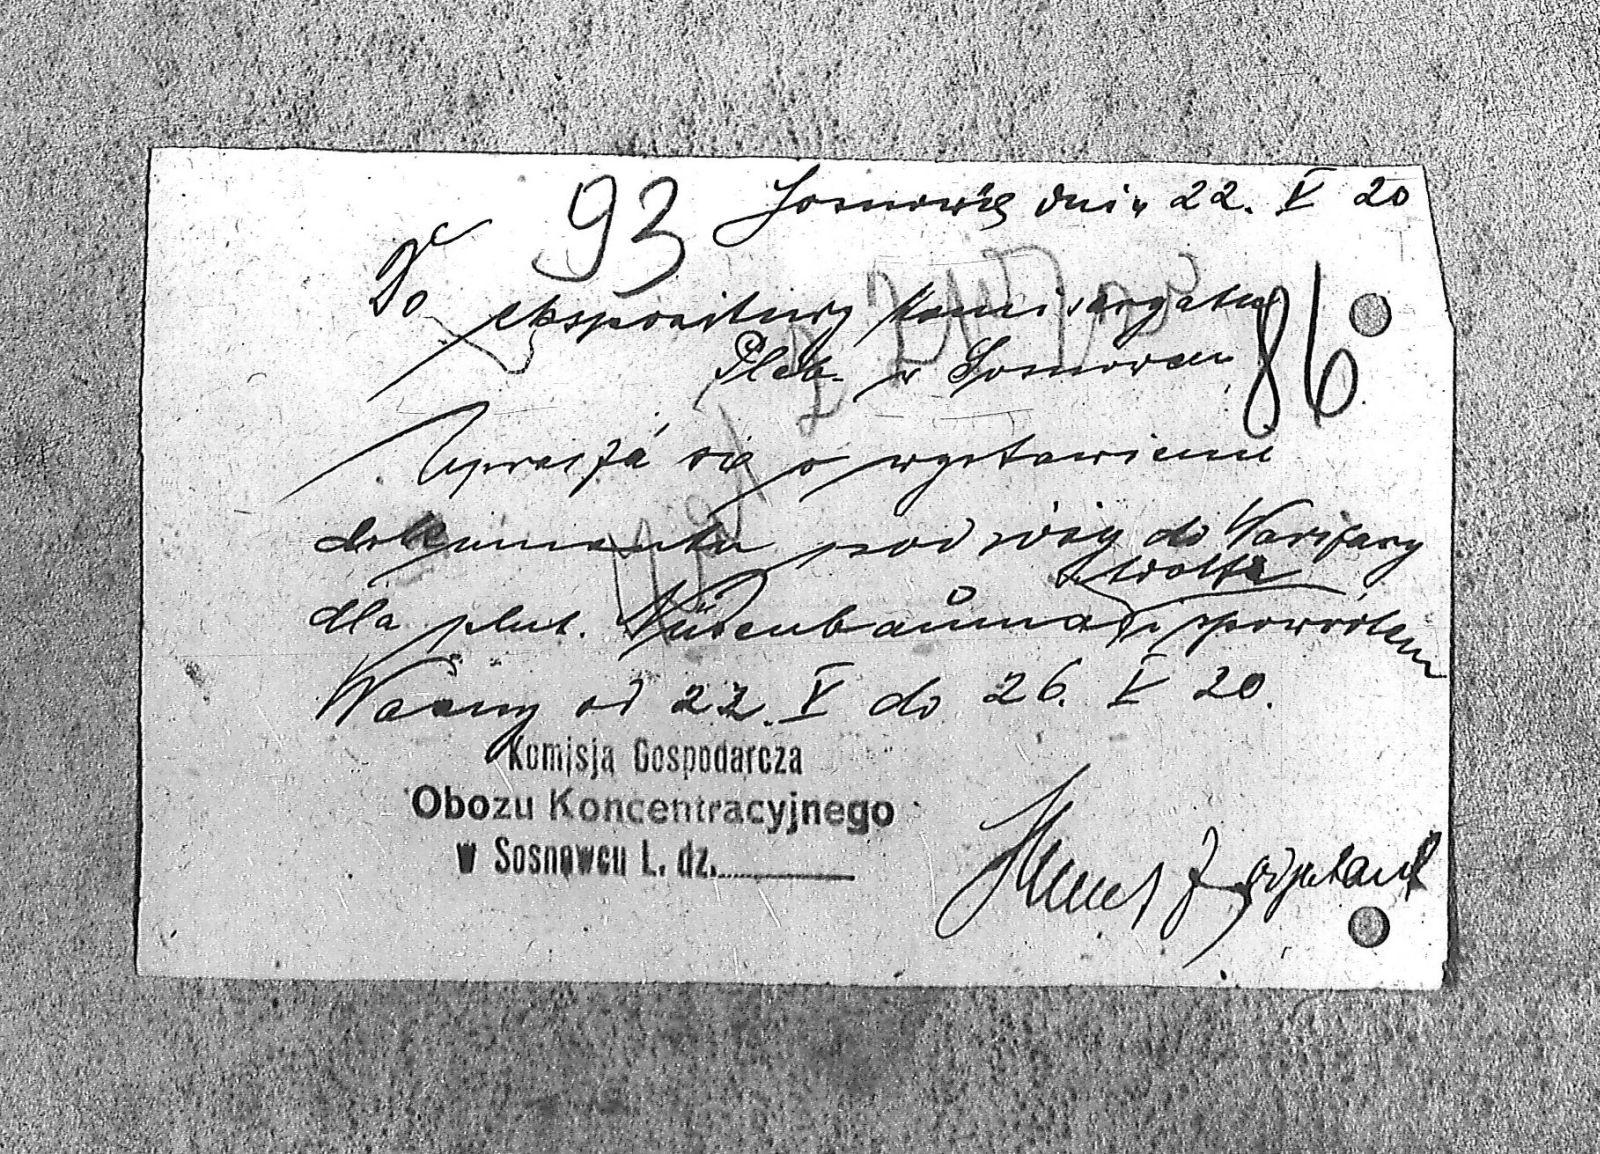 93
Sosnowiec dnia 22. V 20
Do
ekspozitury Komisargatu
Pleb. w Sosnowcu
86
Uprasza się o wystawienie
dokumentu podróży do Warszawy
dla plut. Nüsenbauma Wolfa i spowrotem
Ważny od 22. V do 26. V 20.
Komisja Gospodarcza
Obozu Koncentracyjnego
w Sosnowcu L. dz.
adjutant